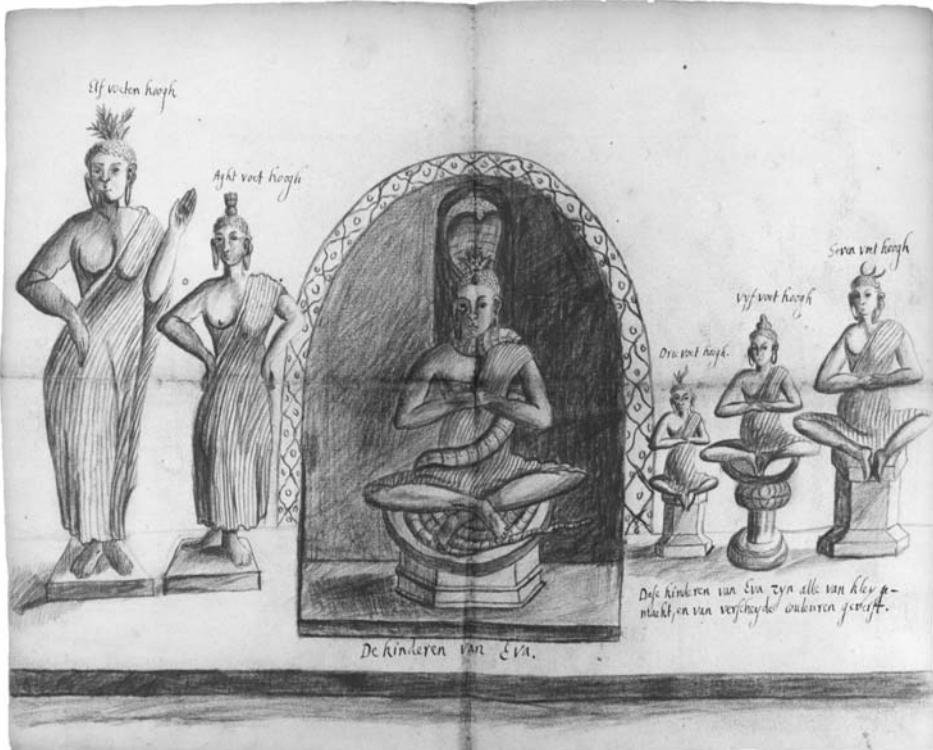 Elf voeten hoogh
Aght voet hoogh
Seven voet hoogh
vyf voet hoogh
Drie voet hoogh.
Dese kinderen van Eva zyn alle van kley ge-
maekt, en van verscheyde couleuren geverft.
De kinderen van Eva.